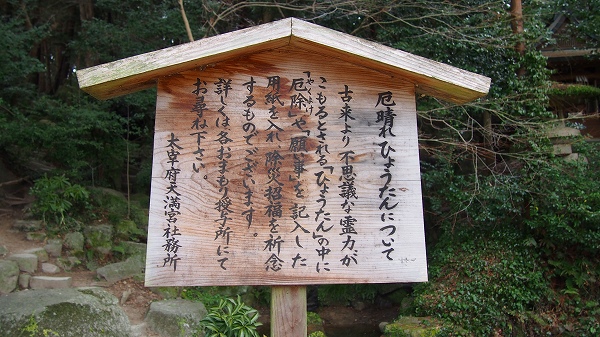 厄晴れひょうたんについて
古来より不思議な霊力が
こもるとされる「ひょうたん」の中に
「厄除」や「願い事」を記入した
用紙を入れ、除災招福を祈念
するものでございます。
詳しくは各お守り授与所にて
お尋ね下さい。
太宰府天満宮社務所